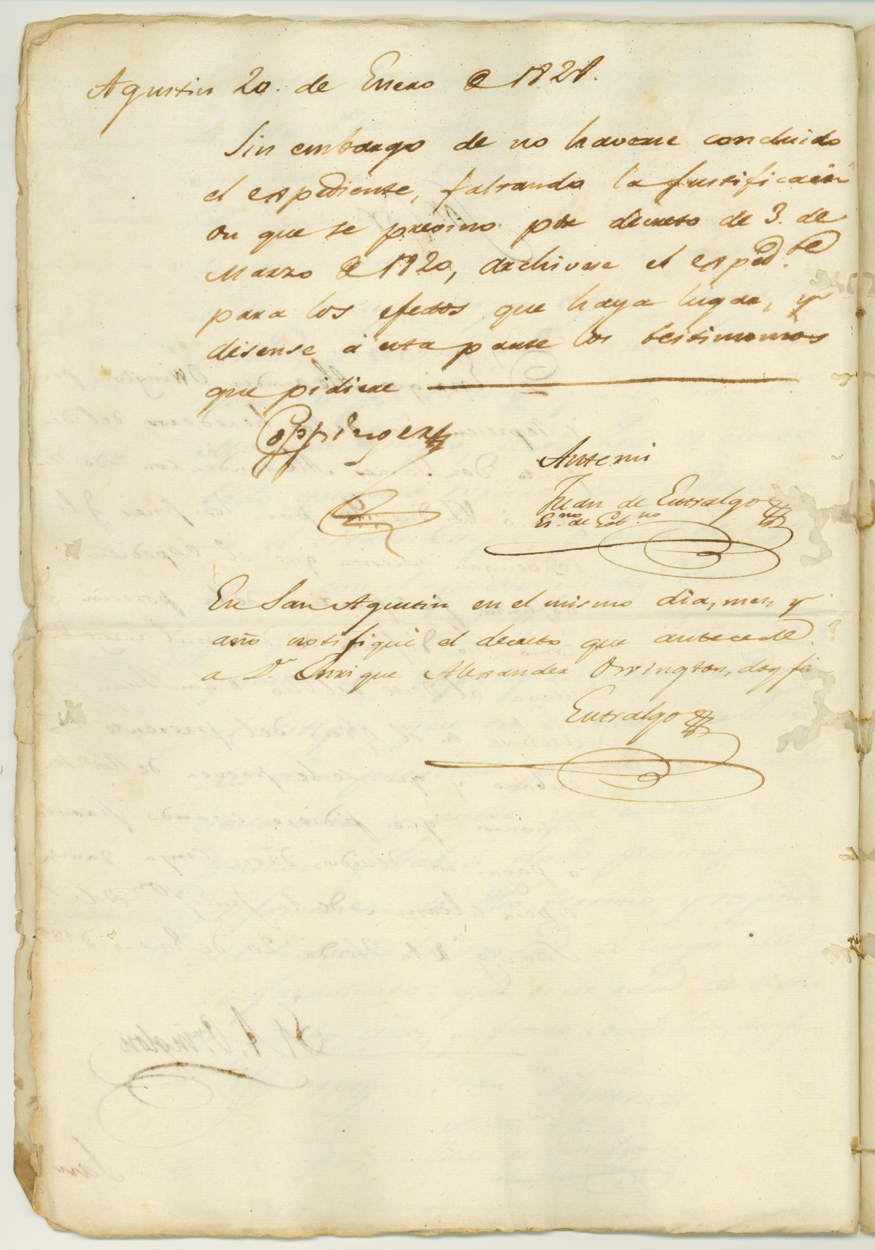 Agustin 20. de Enero de 1821.
Sin embargo de no haverse concluido
el expediente, faltando la justificaci
on que se previno por decreto de 3. de
Marzo de 1820, archivese el exped.te
para los efectos que haya lugar, y
désense á esta parte los testimonios
que pidiere
Coppinger
Antemi
Juan de Entralgo
Es.no de Gob.no
En San Agustin en el mismo dia, mes, y
año notifiqué el decreto que antecede
a D.n Enrique Alexander Orrington, doy fé
Entralgo